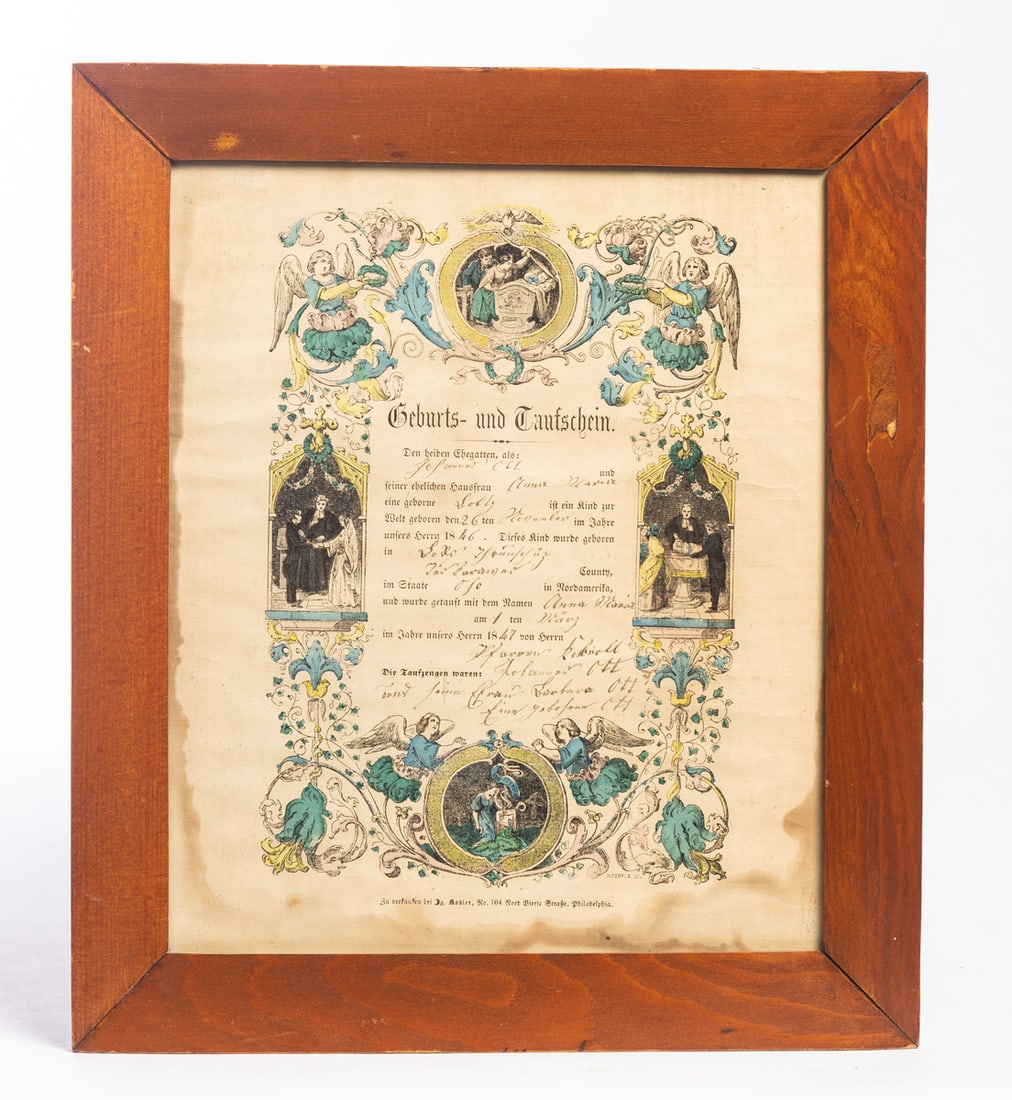 Geburts- und Taufschein.
Den beiden Ehegatten, als:
Johannes Ott und
seiner ehelichen Hausfrau Anna Maria
eine geborne ist ein Kind zur
Welt geboren den 26 ten November im Jahre
unsers Herrn 1846. Dieses Kind wurde geboren
in
County,
im Staate Ohio in Nordamerika,
und wurde getauft mit dem Namen Anna Maria
am 1 ten März
im Jahre unsers Herrn 1847 von Herrn
Pfarrer
Die Taufzeugen waren: Johannes Ott
und seine Frau Barbara Ott
Eine geborene Ott
Zu verkaufen bei Ig. Kohler, No. 104 Nord Vierte Straße, Philadelphia.